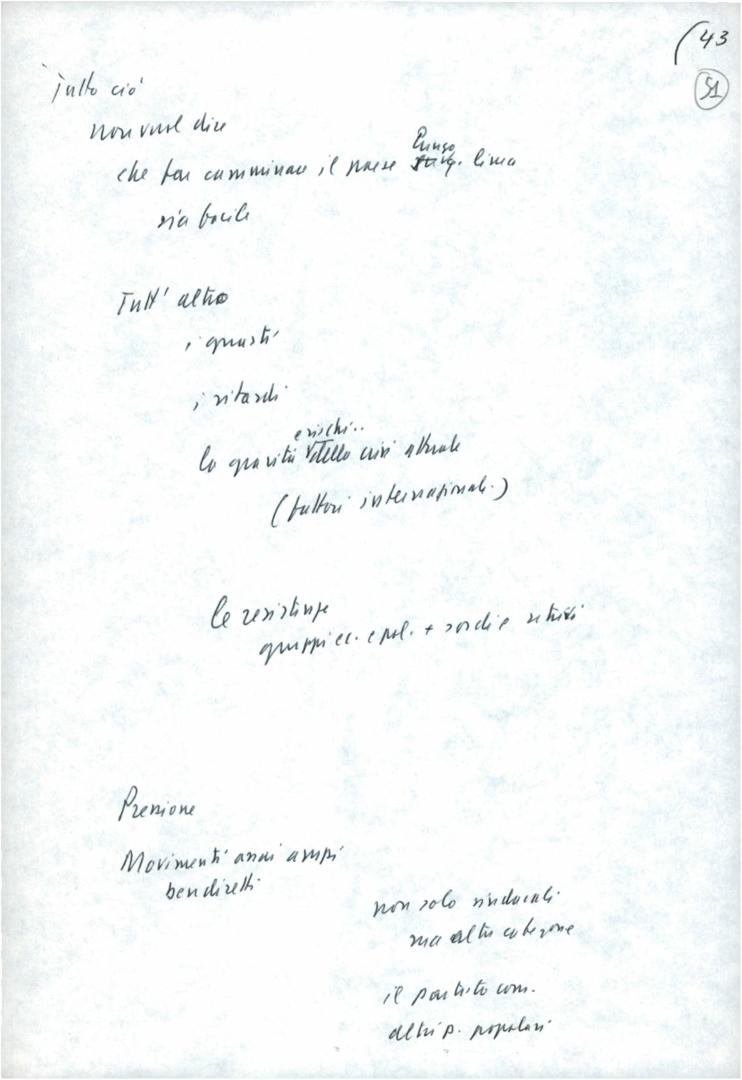 (43
51
Tutto ciò
non vuol dire
che far camminare il paese lungo linea
sia facile
Tutt' altro
i guasti
i ritardi
e rischi..
la gravità della crisi attuale
(fattori internazionali.)
le resistenze
gruppi ec. e pol. + sordi e retrivi
Pressione
Movimenti assai ampi
ben diretti
non solo sindacali
ma altre categorie
il partito com.
altri p. popolari